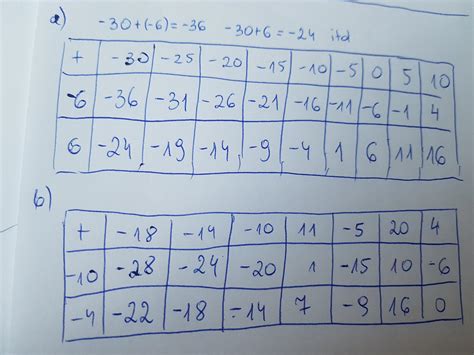 a) -30+(-6)=-36 -30+6=-24 itd
+ -30 -25 -20 -15 -10 -5 0 5 10
-6 -36 -31 -26 -21 -16 -11 -6 -1 4
6 -24 -19 -14 -9 -4 1 6 11 16
b)
+ -18 -14 -10 11 -5 20 4
-10 -28 -24 -20 1 -15 10 -6
-4 -22 -18 -14 7 -9 16 0